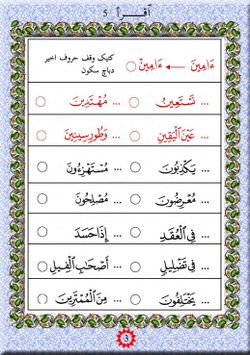 اقرأ ٥
ءَامِينَ ← ءَامِينْ كتيک وقف حروف اخير دباچ سکون
نَسْتَعِينُ ... مُهْتَدِينَ ...
عَيْنَ الْيَقِينِ ... وَطُورِ سِينِينَ ...
يَكْذِبُونَ ... مُسْتَهْزِءُونَ ...
مُعْرِضُونَ ... مُصْلِحُونَ ...
فِي الْعُقَدِ ... إِذَا حَسَدَ ...
فِي تَضْلِيلٍ ... أَصْحَابِ الْفِيلِ ...
يَخْتَلِفُونَ ... مِنَ الْمُمْتَرِينَ ...
3